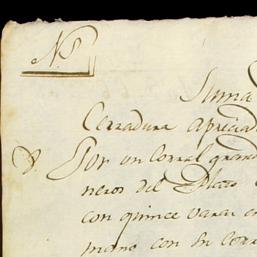 Nº
Suma
Cerradura apreciad
8. Por un corral grand
neros del Patio
con quince varas en
mano con su corr